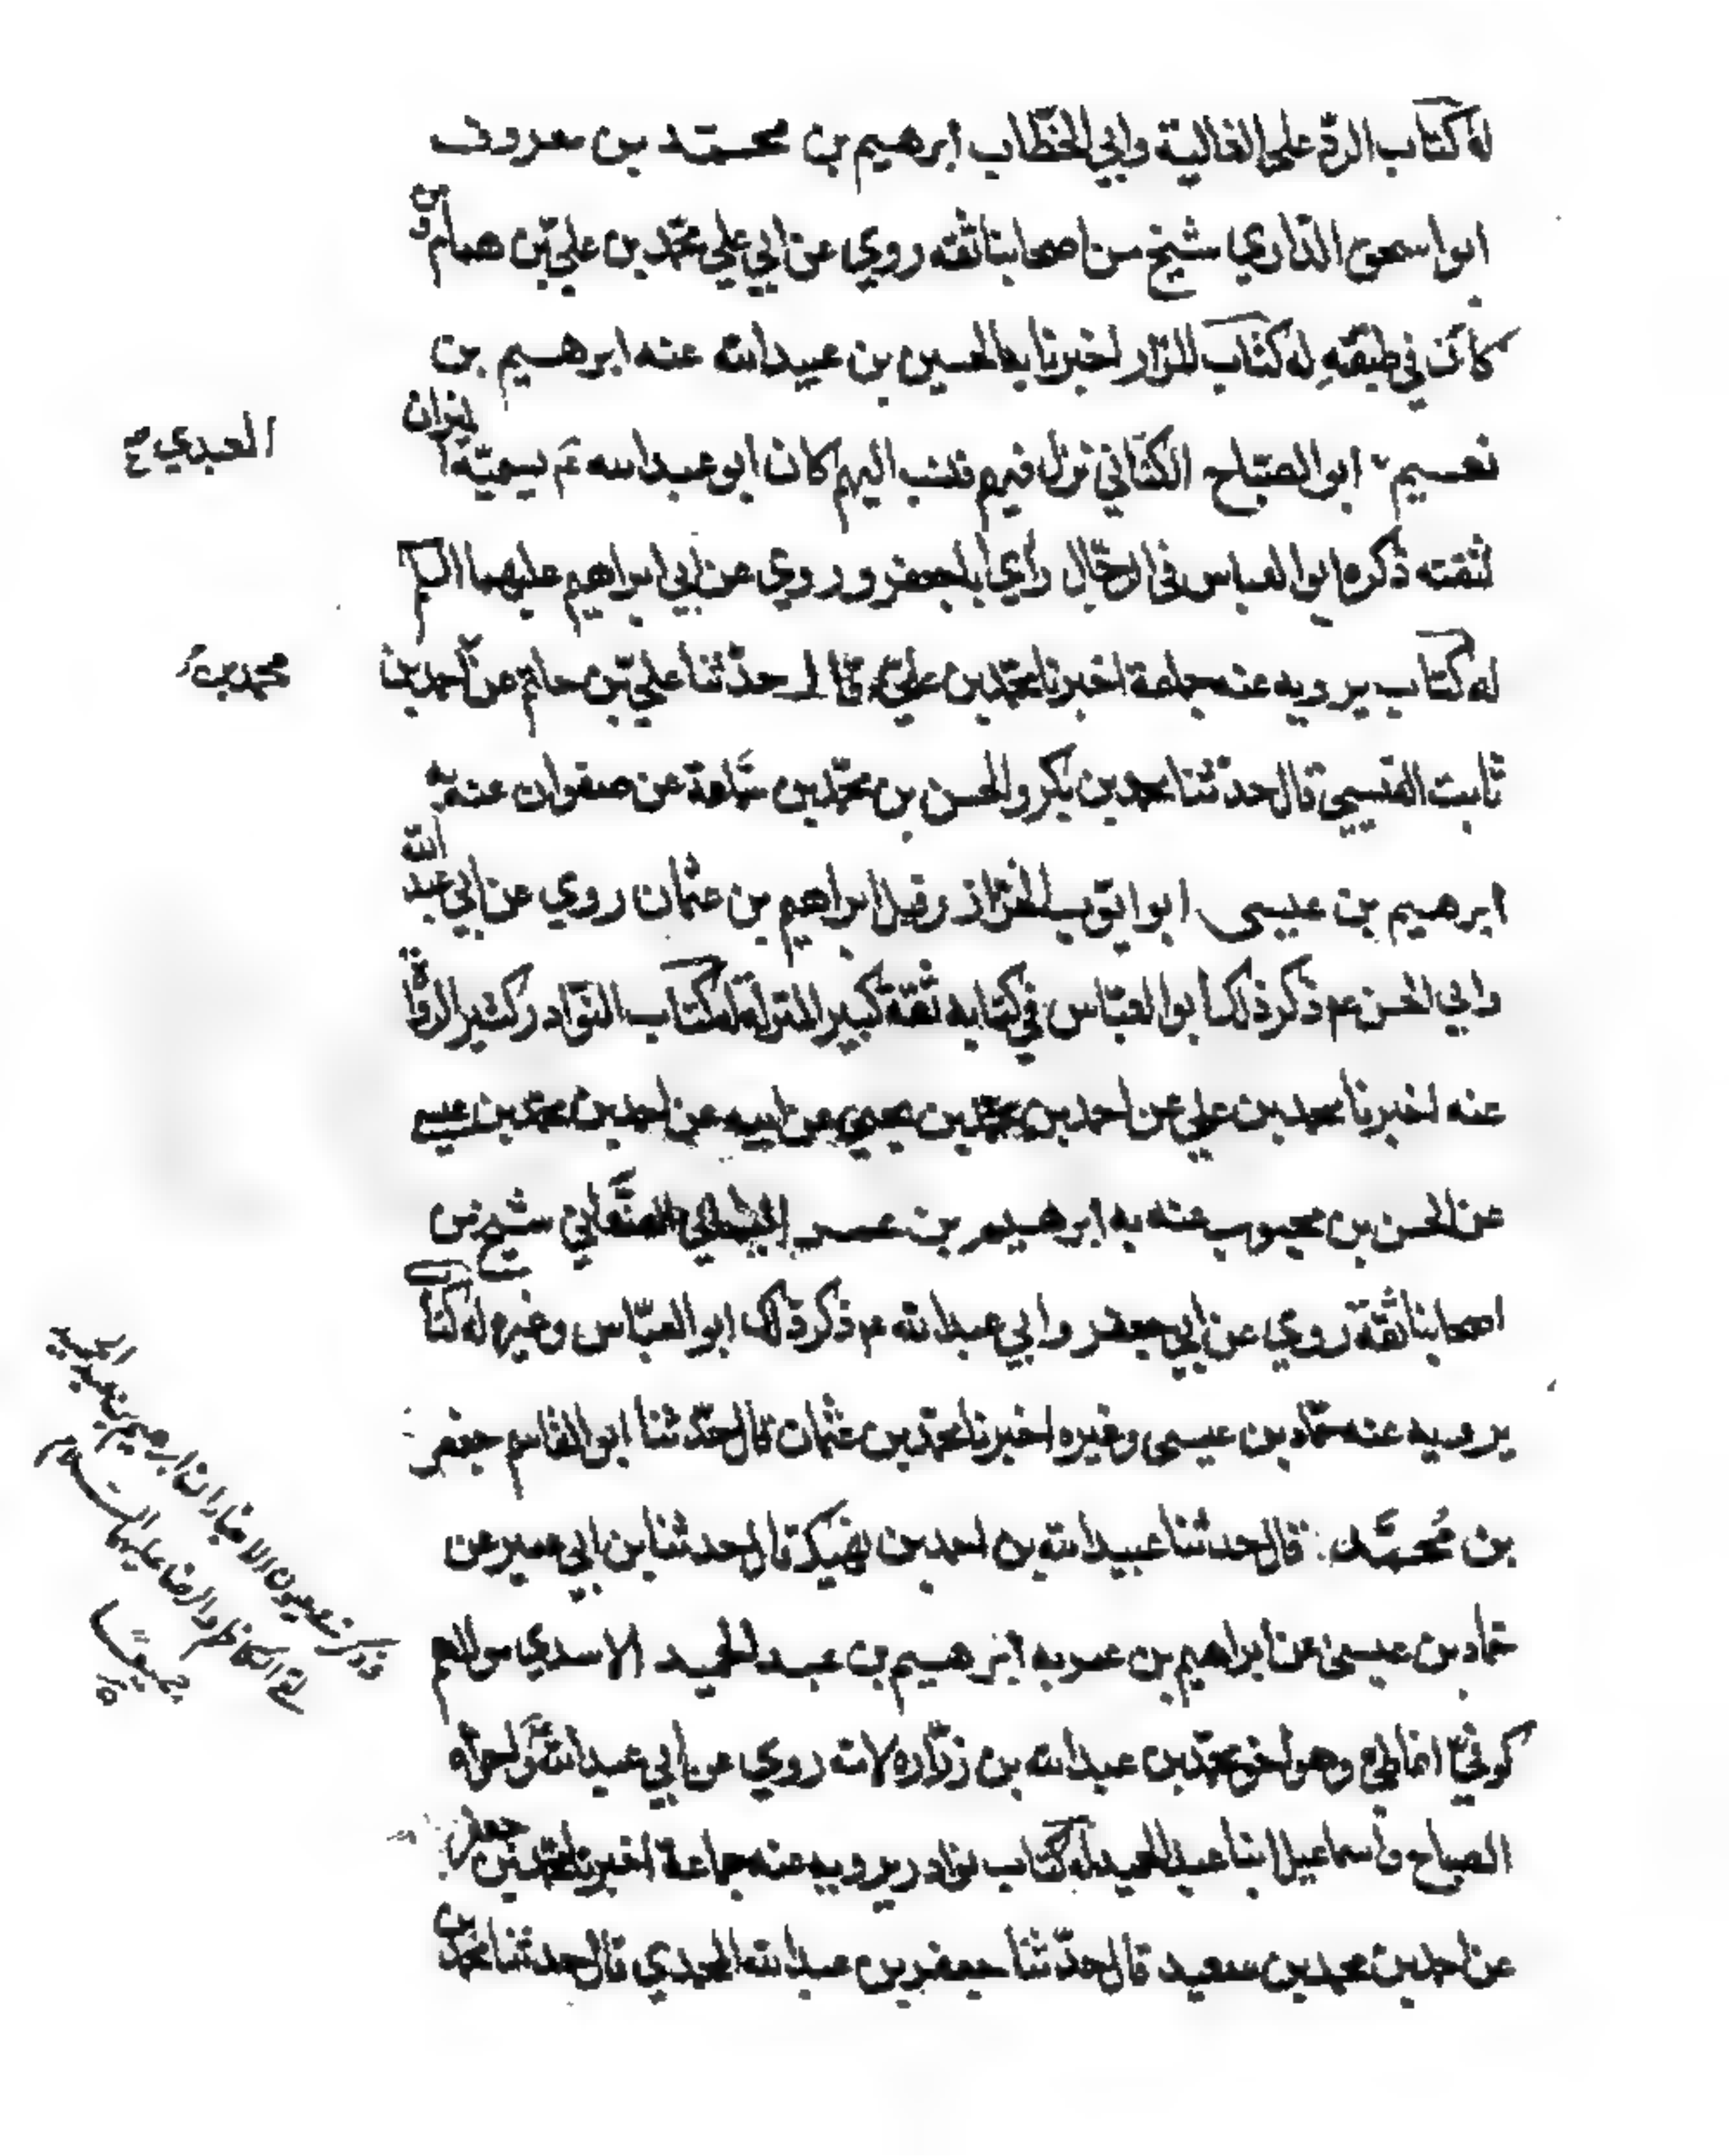 له كتاب الرد على الغالية وابي الخطاب ابرهيم بن محمد بن معروف
ابو اسحق المذاري شيخ من اصحابنا ثقة روي عن ابي علي محمد بن علي بن همام ومن
كان في طبقته له كتاب المزار اخبرنا به الحسين بن عبيد الله عنه ابرهيم بن
نعيم ابو الصباح الكناني نزل فيهم فنسب اليهم كان ابو عبد الله ع يسميه الميزان
العبدي صح
لثقته ذكره ابو العباس في الرجال راي ابا جعفر وروي عن ابي ابراهيم عليهما السلم
له كتاب يرويه عنه جماعة اخبرنا محمد بن علي قال حدثنا علي بن حاتم عن احمد بن
محمد بن
ثابت القيسي قال حدثنا محمد بن بكر والحسن بن محمد بن سماعة عن صفوان عنه به
ابرهيم بن عيسى ابو ايوب الخزاز وقيل ابراهيم بن عثمان روي عن ابي عبد الله
وابي الحسن ع م ذكر ذلك ابو العباس في كتابه ثقة كبير المنزلة له كتاب النوادر كثير الرواة
عنه اخبرنا محمد بن علي عن احمد بن محمد بن يحيى عن ابيه عن احمد بن محمد بن عيسى
عن الحسن بن محبوب عنه به ابرهيم بن عمر اليماني الصنعاني شيخ من
اصحابنا ثقة روي عن ابي جعفر وابي عبد الله ع م ذكر ذلك ابو العباس وغيره له كتاب
يرويه عنه حماد بن عيسى وغيره اخبرنا محمد بن عثمان قال حدثنا ابو القاسم جعفر
بن محمد قال حدثنا عبيد الله بن احمد بن نهيك قال حدثنا بن ابي عمير عن
حماد بن عيسى عن ابراهيم بن عمر به ابرهيم بن عبد الحميد الاسدي مولاهم
كوفي انماطي وهو اخو محمد بن عبد الله بن زراره لامه روي عن ابي عبد الله ع واخواه
الصباح واسماعيل ابنا عبد الحميد له كتاب نوادر يرويه عنه جماعة اخبرنا محمد بن جعفر
عن احمد بن محمد بن سعيد قال حدثنا جعفر بن عبد الله المحمدي قال حدثنا محمد بن
ذكر في عيون الاخبار ان ابرهيم بن عبد الحميد
لقي الكاظم والرضا عليهما السلام